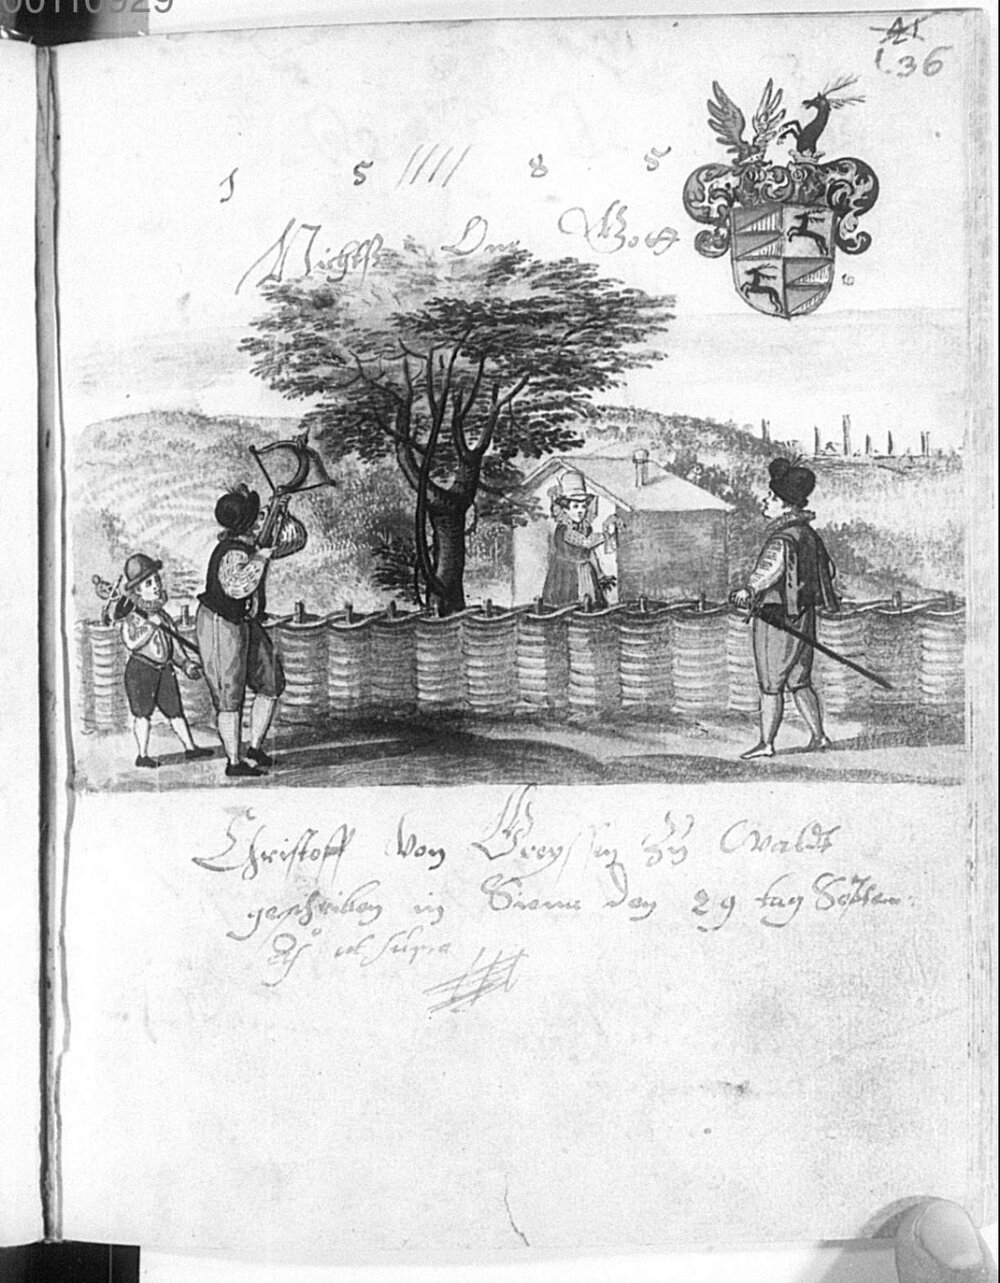 00110929
41
136
15 85
Nichts On Gott
Christoff Von Greyssen Zu Waldt
geschriben in Sienna den 29 tag Septem:
Aº ut supra